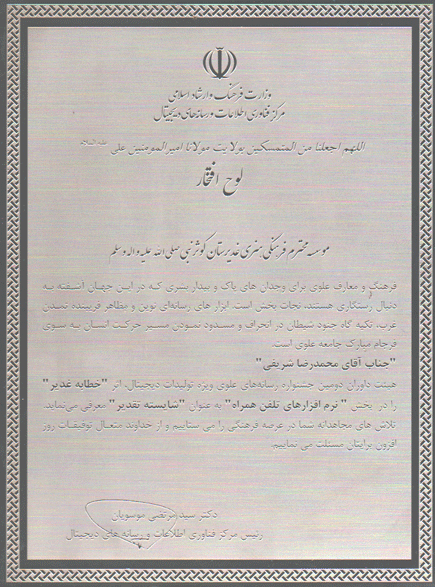 وزارت فرهنگ و ارشاد اسلامی
مرکز فناوری اطلاعات و رسانه‌های دیجیتال
اللهم اجعلنا من المتمسکین بولایت مولانا امیرالمومنین علی علیه السلام
لوح افتخار
موسسه محترم فرهنگی هنری غدیرستان کوثر نبی صلی الله علیه و اله و سلم
فرهنگ و معارف علوی برای وجدان های پاک و بیدار بشری که در این جهان آشفته به
دنبال رستگاری هستند، نجات بخش است. ابزار های رسانه‌ای نوین و مظاهر فریبنده تمدن
غرب، تکیه گاه جنود شیطان در انحراف و مسدود نمودن مسیر حرکت انسان به سوی
فرجام مبارک جامعه علوی است.
"جناب آقای محمدرضا شریفی"
هیئت داوران دومین جشنواره رسانه‌های علوی ویژه تولیدات دیجیتال، اثر "خطابه غدیر"
را در بخش "نرم افزارهای تلفن همراه" به عنوان "شایسته تقدیر" معرفی می‌نماید.
تلاش های مجاهدانه شما در عرصه فرهنگی را می ستاییم و از خداوند متعال توفیقات روز
افزون برایتان مسئلت می نماییم.
دکتر سید مرتضی موسویان
رئیس مرکز فناوری اطلاعات و رسانه های دیجیتال